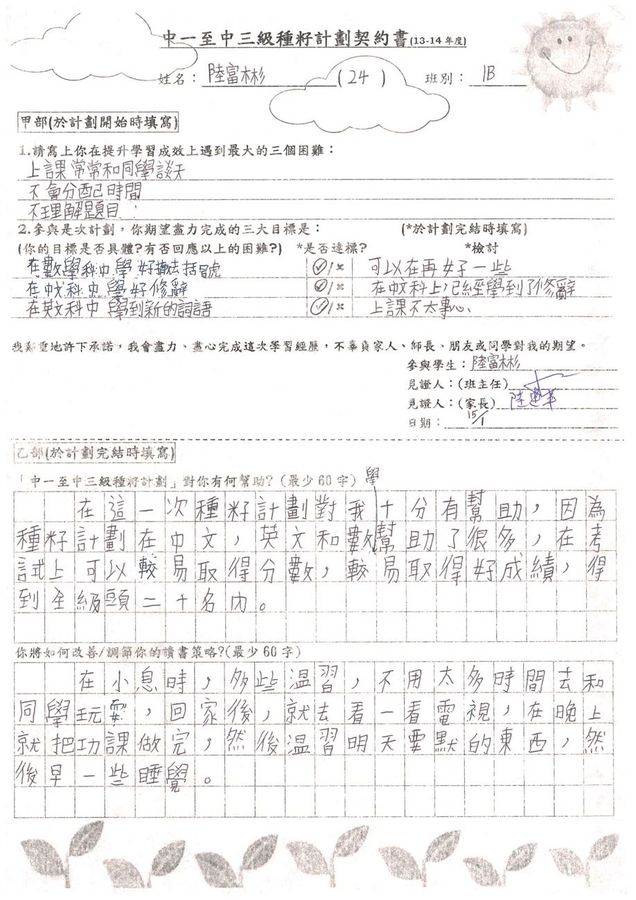 中一至中三級種籽計劃契約書(13-14年度)
姓名：陸富林彬 (24) 班別：1B
甲部(於計劃開始時填寫)
1.請寫上你在提升學習成效上遇到最大的三個困難：
上課常常和同學談天
不會分配已時間
不理解題目
2.參與是次計劃，你期望盡力完成的三大目標是： (*於計劃完結時填寫)
(你的目標是否具體?有否回應以上的困難?) *是否達標? *檢討
在數學科中學好撤去括號 ✓/× 可以在再好一些
在中文科中學好修辭 ✓/× 在中文科上，已經學到了修辭
在英文科中學到新的詞語 ✓/× 上課不太專心、
我鄭重地許下承諾，我會盡力、盡心完成這次學習經歷，不辜負家人、師長、朋友或同學對我的期望。
參與學生：陸富林彬
見證人：(班主任)
見證人：(家長)
日期：15/1
乙部(於計劃完結時填寫)
「中一至中三級種籽計劃」對你有何幫助?(最少60字)
在這一次種籽計劃對我十分有幫助，因為
種籽計劃在中文，英文和數學幫助了很多，在考
試上可以較易取得分數，較易取得好成績，得
到全級頭二十名內。
你將如何改善/調節你的讀書策略?(最少60字)
在小息時，多些溫習，不用太多時間去和
同學玩耍，回家後，就去看一看電視，在晚上
就把功課做完，然後溫習明天要默的東西，然
後早一些睡覺。